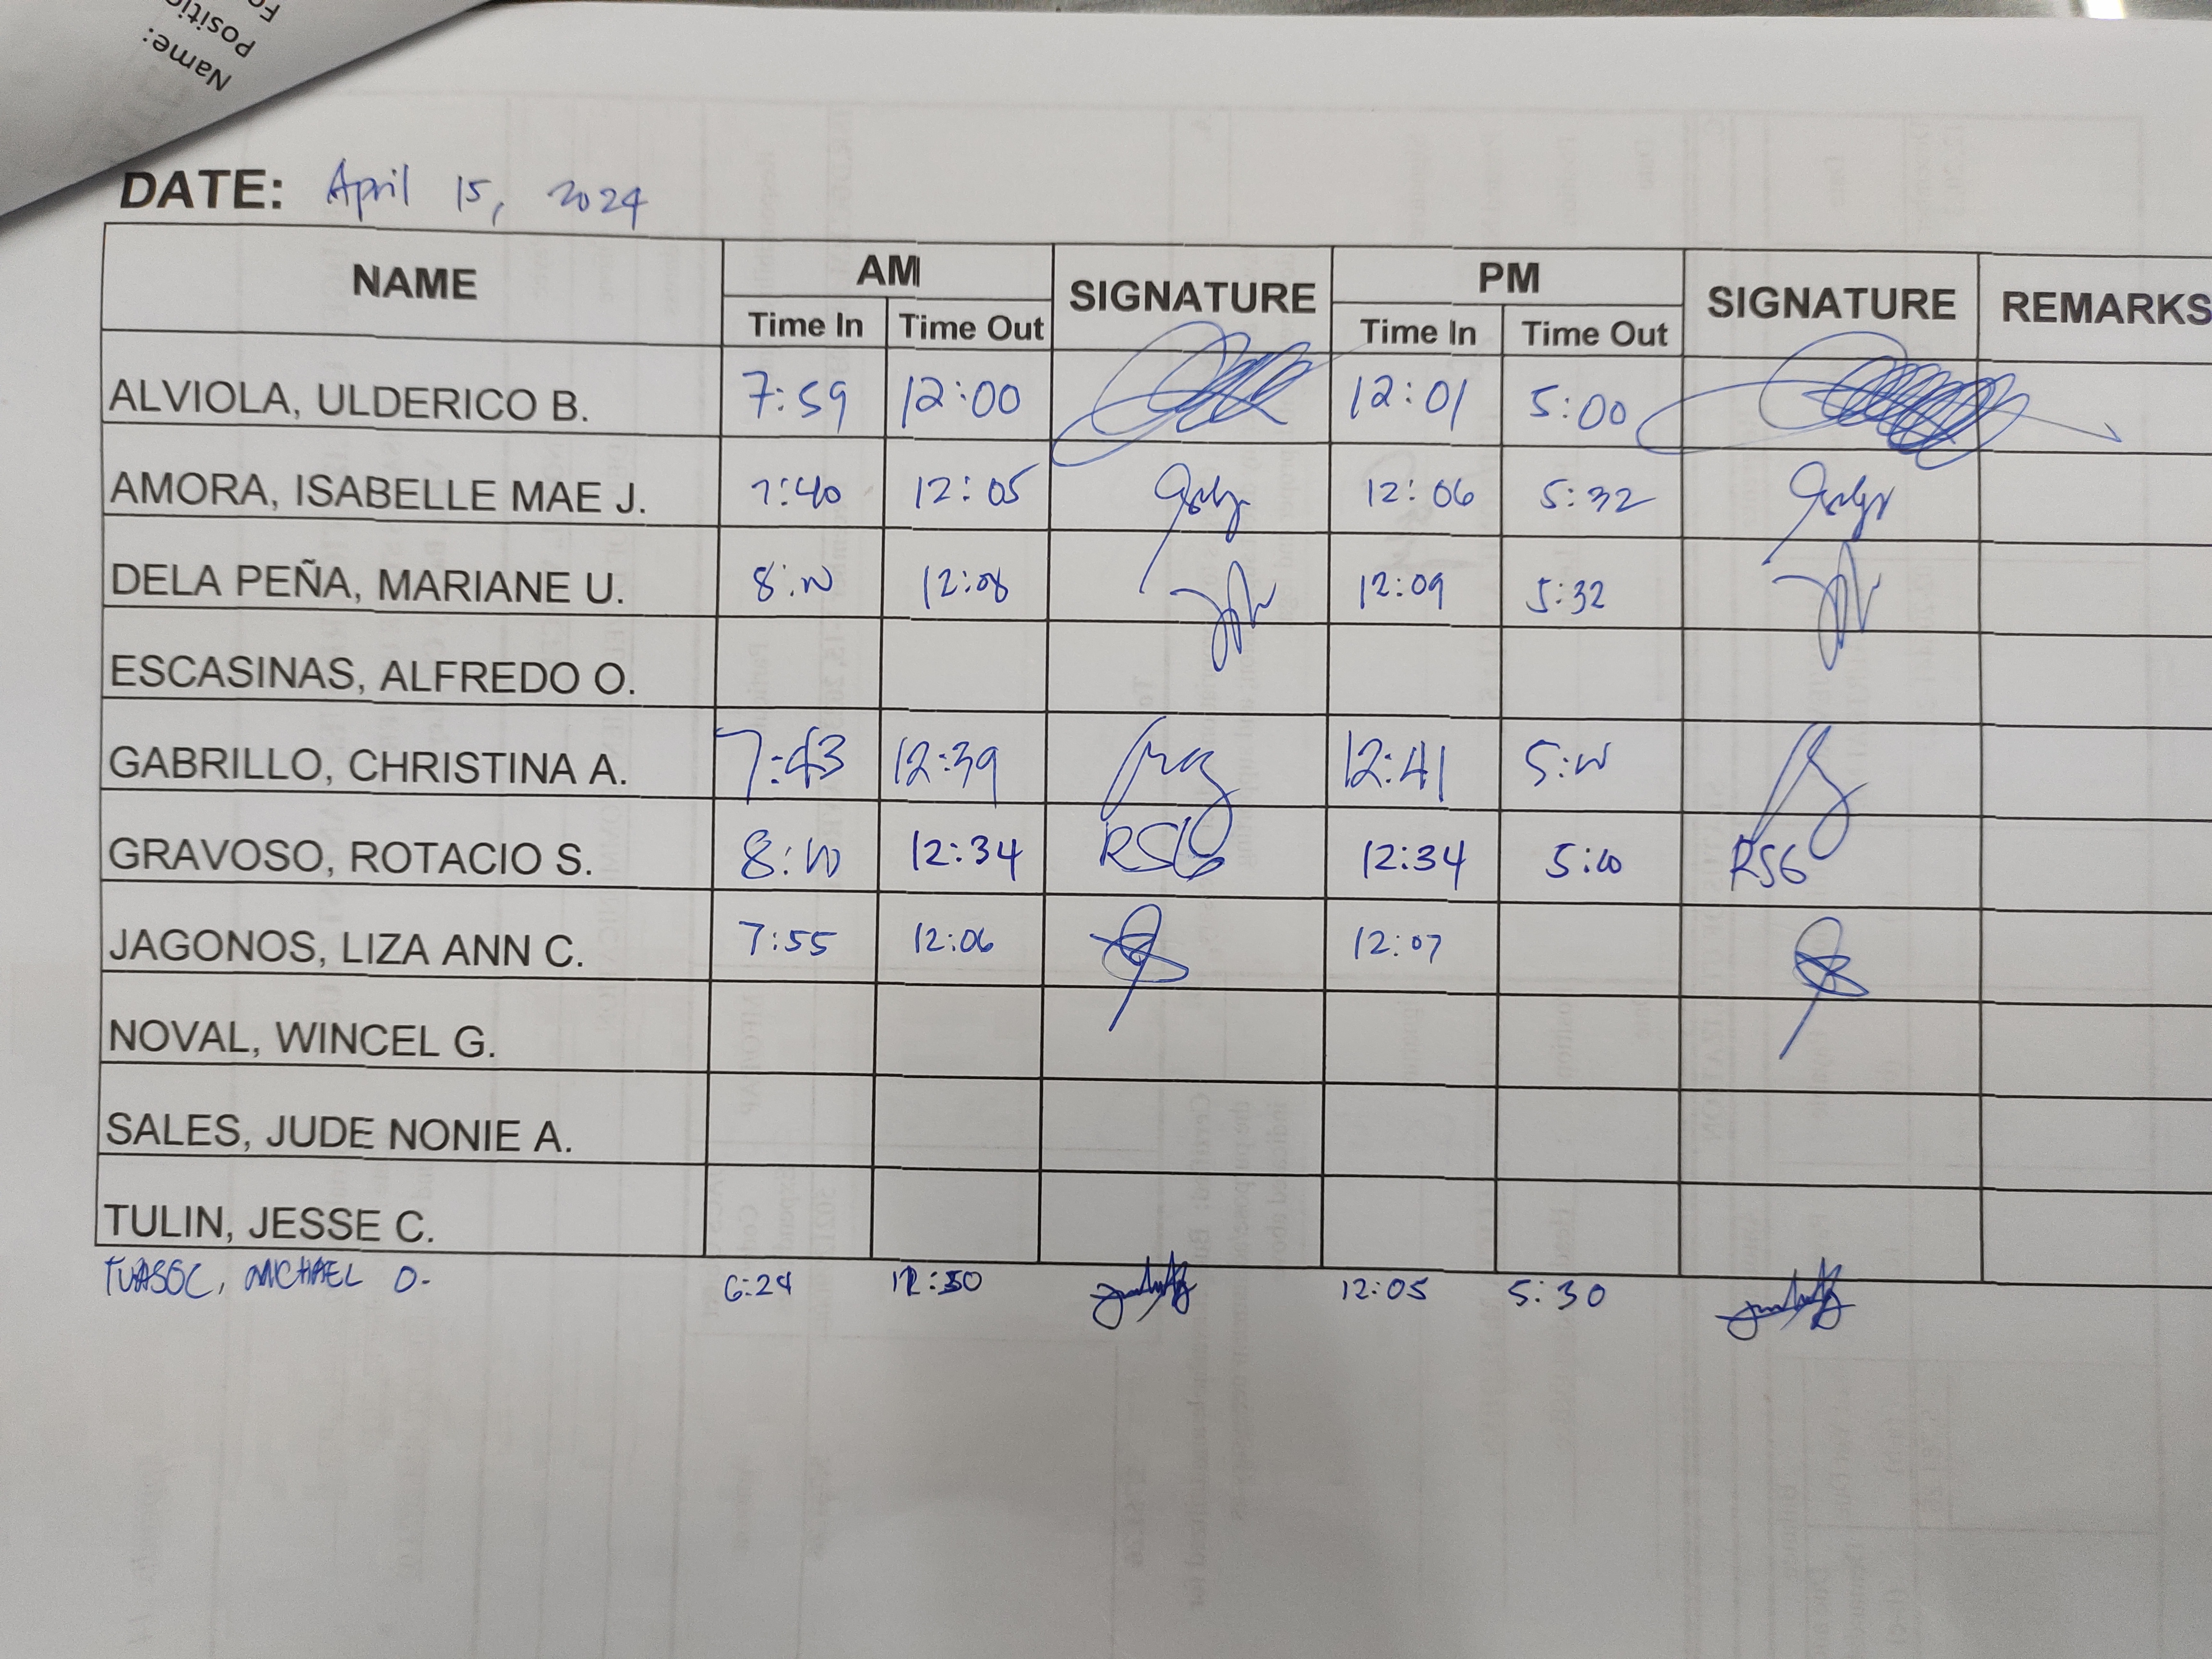 Name:
Positio
Fo
DATE: April 15, 2024
NAME AM SIGNATURE PM SIGNATURE REMARKS
Time In Time Out Time In Time Out
ALVIOLA, ULDERICO B. 7:59 12:00 12:01 5:00
AMORA, ISABELLE MAE J. 7:40 12:05 12:06 5:32
DELA PEÑA, MARIANE U. 8:00 12:08 12:09 5:32
ESCASINAS, ALFREDO O.
GABRILLO, CHRISTINA A. 7:43 12:39 12:41 5:00
GRAVOSO, ROTACIO S. 8:00 12:34 RSG 12:34 5:00 RSG
JAGONOS, LIZA ANN C. 7:55 12:06 12:07
NOVAL, WINCEL G.
SALES, JUDE NONIE A.
TULIN, JESSE C.
TUASOC, MICHAEL O. 6:24 5:30 12:05